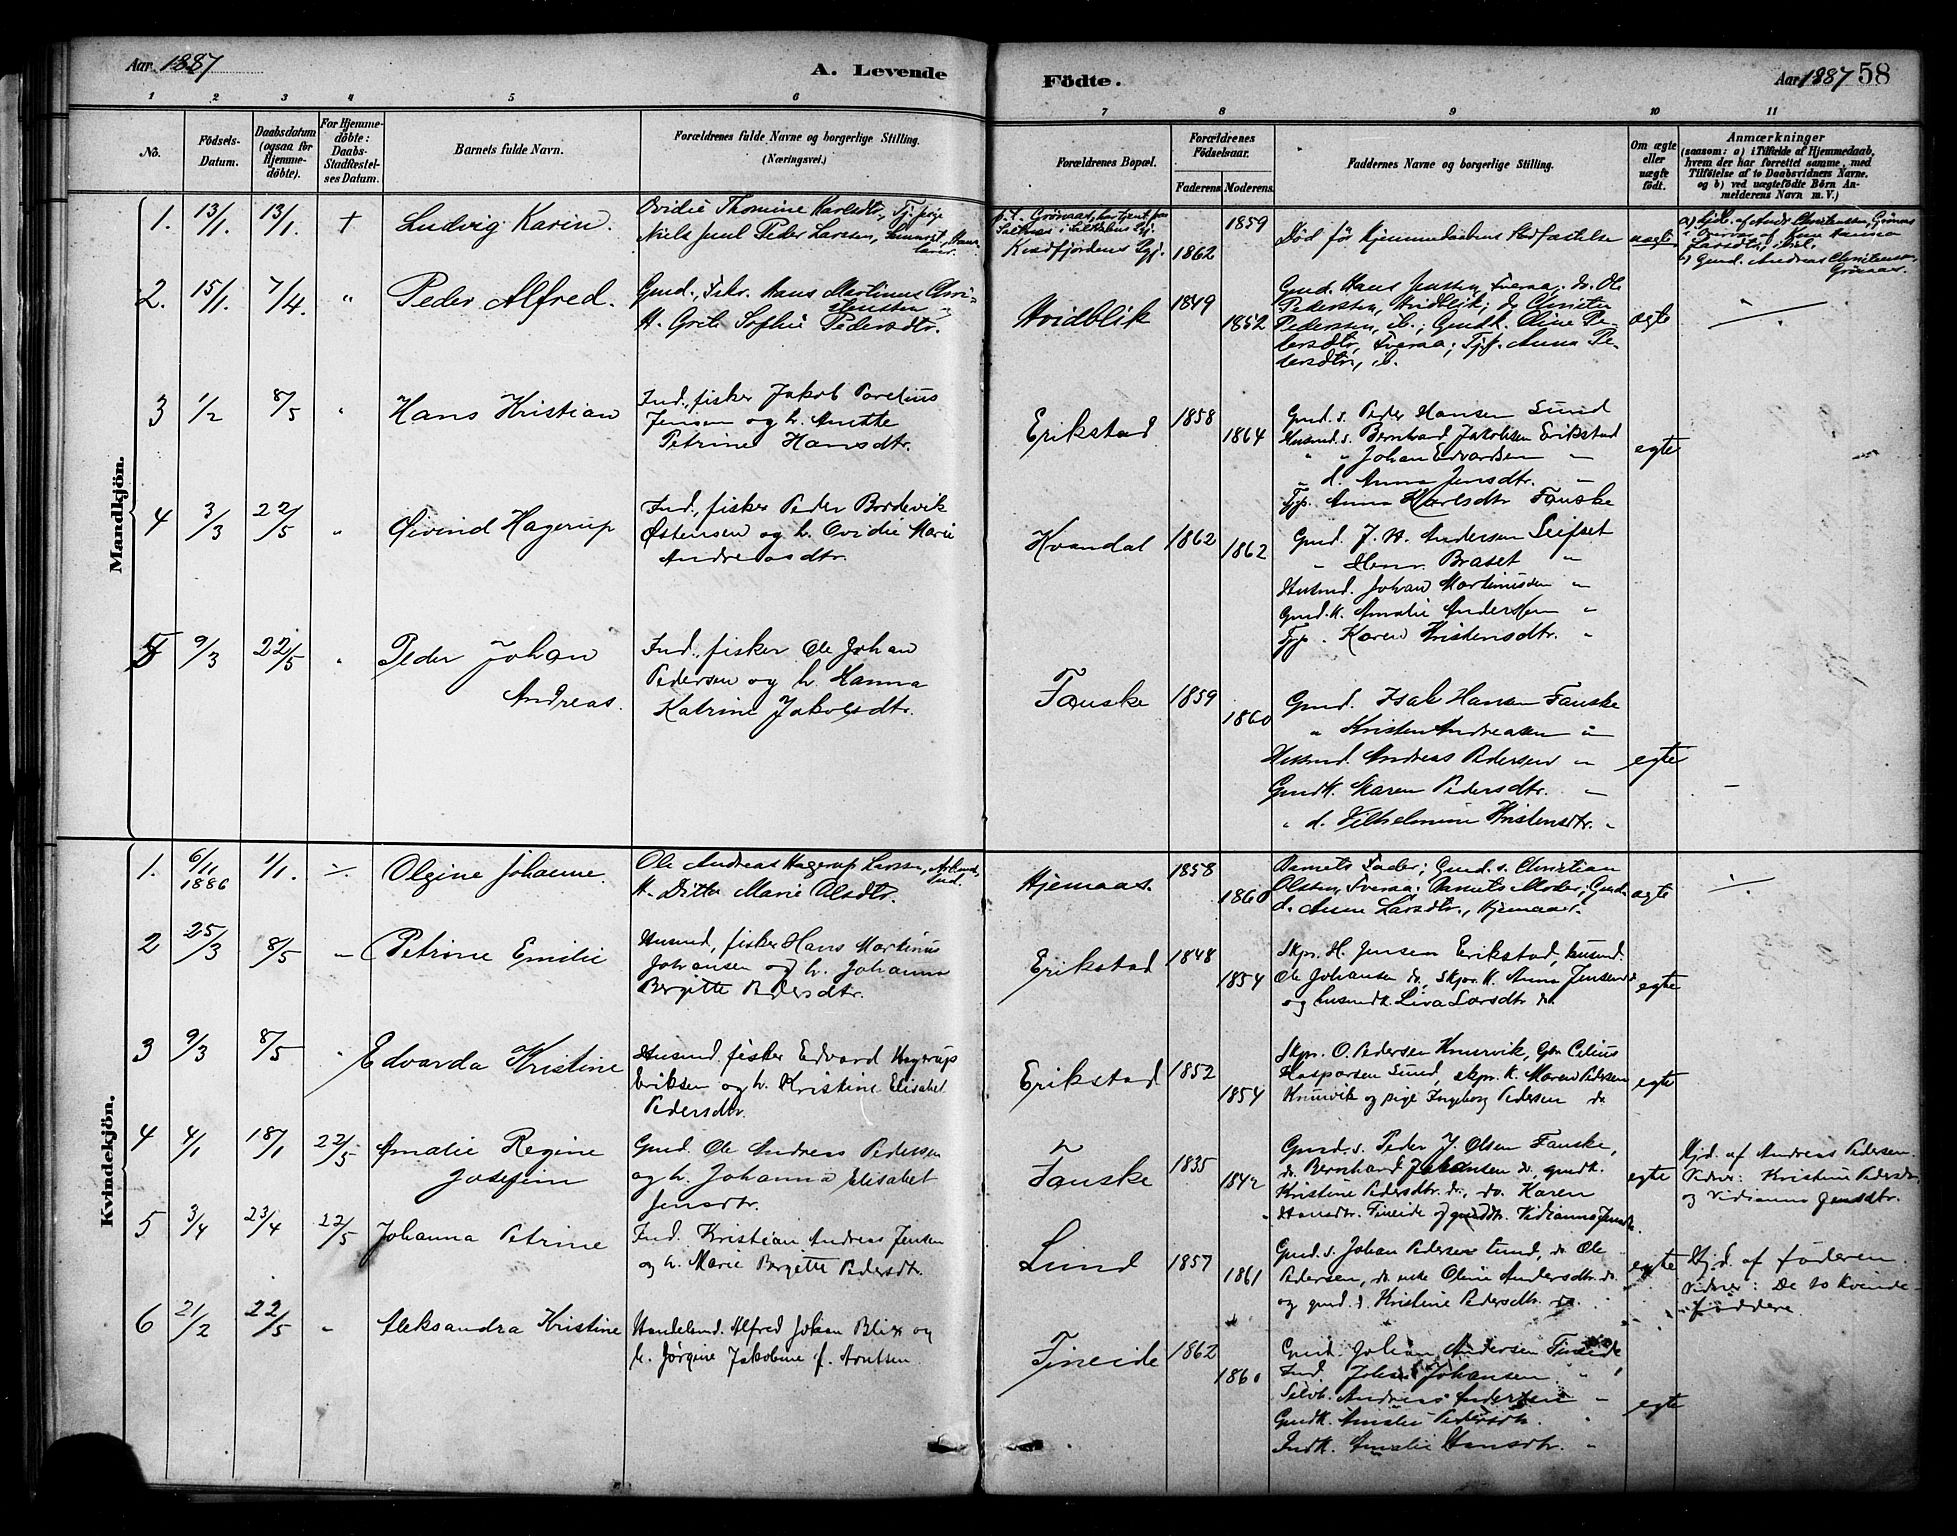 Aar 1887
A. Levende
Födte.
Aar 1887 58
1 2 3 4 5 6 7 8 9 10 11
No.
Födsels-Datum.
Daabsdatum (ogsaa for Hjemmedöbte).
For Hjemmedöbte: Daabs-Stadfestelses Datum.
Barnets fulde Navn.
Forældrenes fulde Navne og borgerlige Stilling.
(Næringsvei.)
Forældrenes Bopæl.
Forældrenes Födselsaar.
Faderens Moderens
Faddernes Navne og borgerlige Stilling.
Om ægte eller uægte födt.
Anmærkninger
(saasom: a) i Tilfælde af Hjemmedaab, hvem der har forrettet samme, med Tilföielse af to Daabsvidners Navne. og b) ved uægtefödte Börn Anmelderens Navn m. V.)
Mandkjön.
1. 13/1. 13/1. † Ludvig Karin.
Ovidie Thomine Karlsdtr., Tj.pige
Niels Juul Peder Larsen,
Kvædfjordens Pgj.
1862 1859
Död før Hjemmedaabens Stadfæstelse
uægte
2. 15/1. 7/4. " Peder Alfred.
Gmd., Fisker Hans Martinus Christensen
H. Grete Sofhie Pedersdtr.
Hvidblik
1849
1852
Gmd. Hans Jensen, Tveraa; do. Ole
Pedersen, Hvidblik; do Christen
Pedersen, ib.; Gmdk. Oline Pedersdtr, Tveraa; Tjp. Anna Pedersdtr, ib.
ægte
3 1/2 8/5 " Hans Kristian
Ind., fisker Jakob Parelius
Jensen og h. Anette
Petrine Hansdtr.
Erikstad
1858
1864
Gmd.s. Peder Hansen Lund
Husmd.s. Bernhard Jakobsen Erikstad
" " Johan Edvardsen "
" d. Anna Jensdtr. "
Tjp. Anna Karlsdtr Fauske
egte
4 3/3 22/5 " Øivind Hagerup
Ind., fisker Peder Bordevik
Østensen og h. Ovidie Marie
Andreasdtr.
Kvandal
1862
1862
Gmd. J. A. Andersen Leifset
" Henr. Braset "
Husmd. Johan Martinussen "
Gmd.k. Amalie Andersen "
Tjp. Karen Kristensdtr. "
5 9/3 22/5 " Peder Johan
Andreas.
Ind., fisker Ole Johan
Pedersen og h. Hanna
Katrine Jakobsdtr.
Fauske
1859
1860
Gmd. Isak Hansen Fauske
" Kristen Andreasen "
Husmd. Andreas Pedersen "
Gmdk. Maren Pedersdtr. "
" d. Vilhelmine Kristensdtr. "
egte
Kvindekjön.
1. 6/11 1886 1/1. Olgine Johanne.
Ole Andreas Hagerup Larsen,
H. Ditte Marie Olsdtr.
Hjemaas.
1858
1860
Barnets Fader; Gmd.s. Christian
Olsen, Tveraa; Barnets Moder; Gmd.
d. Anne Larsdtr., Hjemaas.
ægte
2 25/3 8/5 " Petrine Emilie
Husmd., fisker Hans Martinus
Johansen og h. Johanna
Bergitte Pedersdtr.
Erikstad
1848
1854
Skpr. H. Jensen Erikstad, husmd.
Ole Johansen do, skpr. k. Anna Jensen do
og husmdk. Lina Larsdtr do
egte
3 9/3 8/5 " Edvarda Kristine
Husmd. fisker Edvard Hagerup
Eriksen og h. Kristine Elisabet
Pedersdtr.
Erikstad
1852
1854
Skpr. O. Pedersen Knurvik,
Kaspersen Lund, skpr. k. Maren Pedersen
Knurvik og pige Ingeborg Pedersen do
egte
4 4/1 18/1 22/5 Amalie Regine
Josefine
Gmd. Ole Andreas Pedersen
og h. Johanna Elisabet
Jensdtr.
Fauske
1835
1842
Gmd.s. Peder J. Olsen Fauske,
do. Bernhard Johansen do. gmdk.
Kristine Pedersdtr. do., do. Karen
Hansdtr. Fineide og gmddtr. Vidianna Jensdtr.
egte
Hjd. af Andreas Pedersen.
Vidner: Kristine Pedersdtr
og Vidianna Jensdtr.
5 3/4 23/4 22/5 Johanna Petrine
Ind. Kristian Andreas Jensen
og h. Marie Bergitte Pedersdtr.
Lund
1857
1861
Gmd.s. Johan Pedersen Lund, do Ole
Pedersen, do Oline Andersdtr. do
og gmd. d. Kristine Pedersdtr. do.
egte
Hjd. af faderen.
Vidner: De to kvindefaddere.
6 21/2 22/5 " Aleksandra Kristine
Handelsmd. Alfred Johan Blix og
h. Jørgine Jakobine f. Arntsen
Fineide
1862
1860
Gmd. Johan Andersen Fineide
Ind. Johan Johansen "
Selvh. Andreas Andersen "
Gmdk. Amalie Pedersdtr. "
Indk. Amalie Hansdtr. "
egte